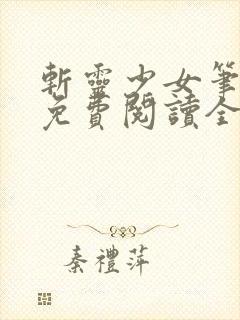 斬靈少女筆
免費閱讀全
秦禮萍